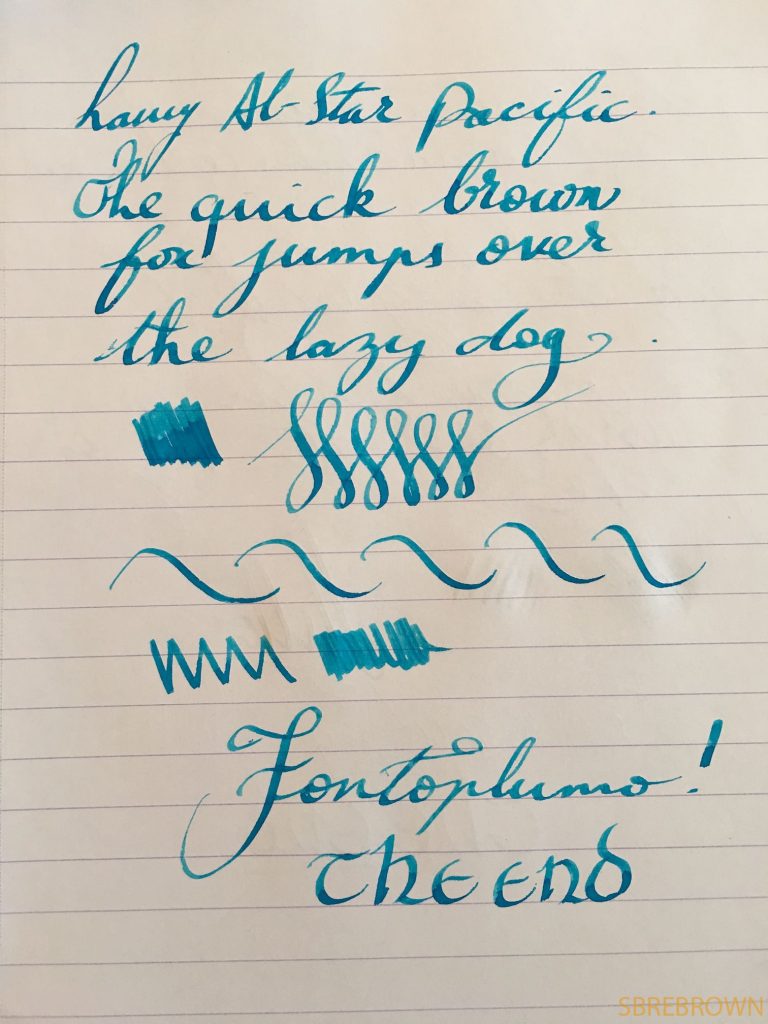 Lamy Al-Star Pacific.
The quick brown
fox jumps over
the lazy dog.
Fontoplumo!
The End
SBREBROWN